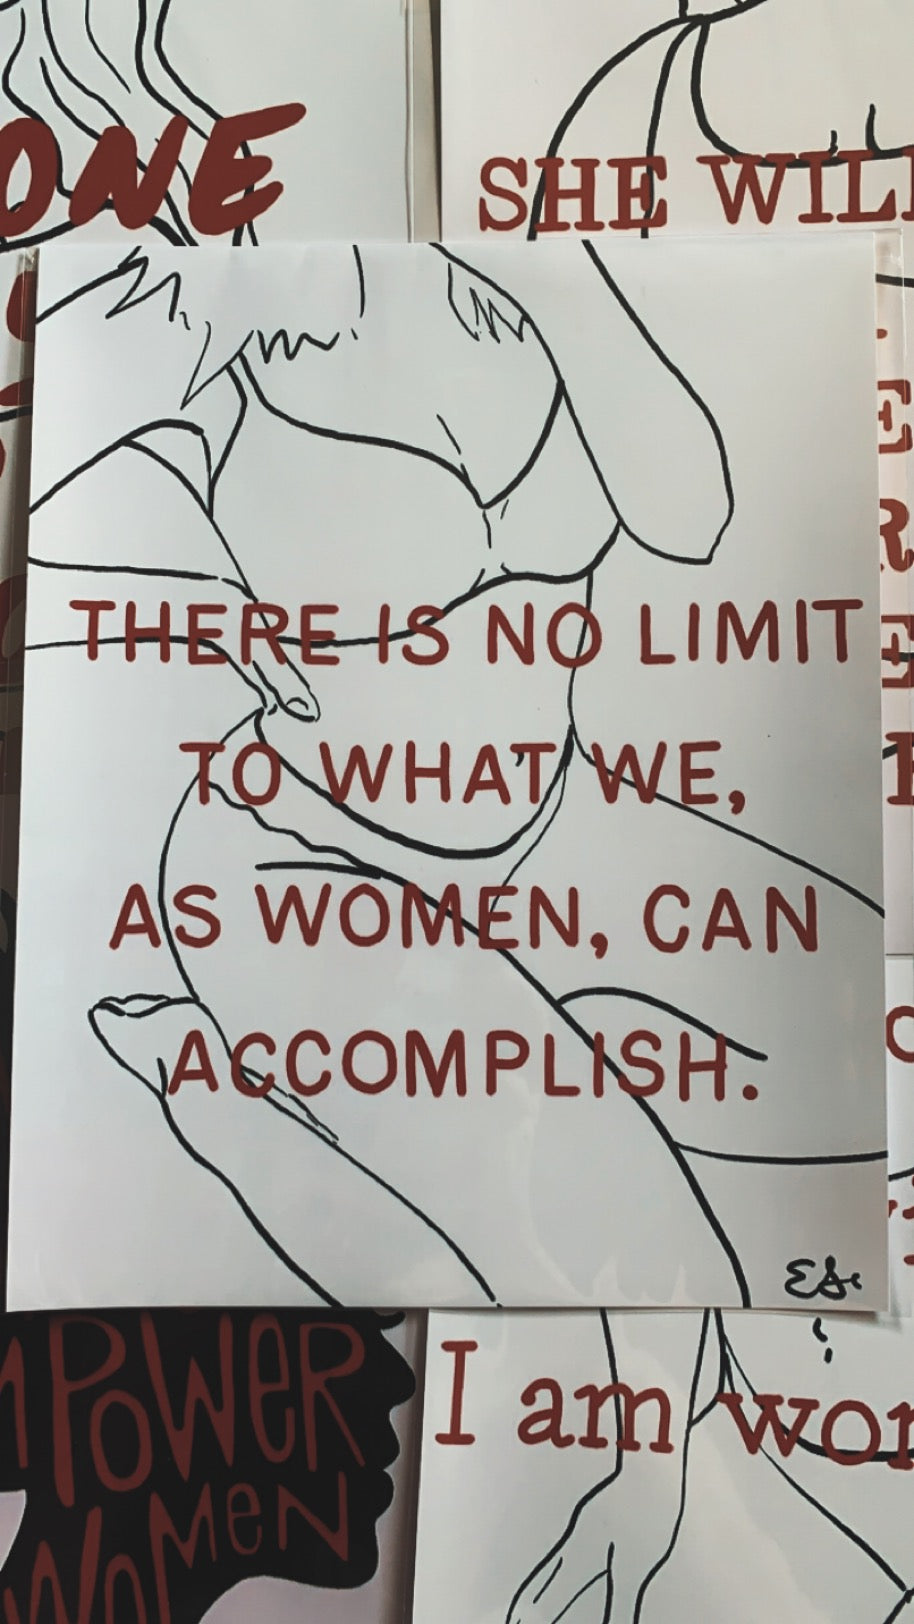 ONE
SHE WILL
THERE IS NO LIMIT
TO WHAT WE,
AS WOMEN, CAN
ACCOMPLISH.
ES.
MPOWER
WOMEN
I am wor